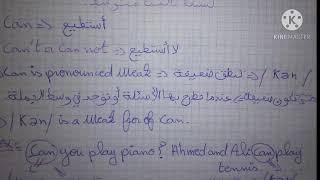 Can => أستطيع
Can't or Can not => لا أستطيع
Can is pronounced Weak => تنطق ضعيفة => / Kən /
عندما نطرح بها الأسئلة أو توجد في وسط الجملة
=> / Kən / is a Weak form of Can.
Ex: Can you play piano? Ahmed and Ali Can play
tennis.
KINEMASTER